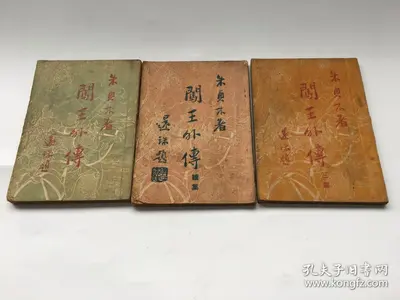 朱貞木著
闖王外傳
朱貞木著
闖王外傳
續集
朱貞木著
闖王外傳
三集
孔夫子旧书网
www.kongfz.com